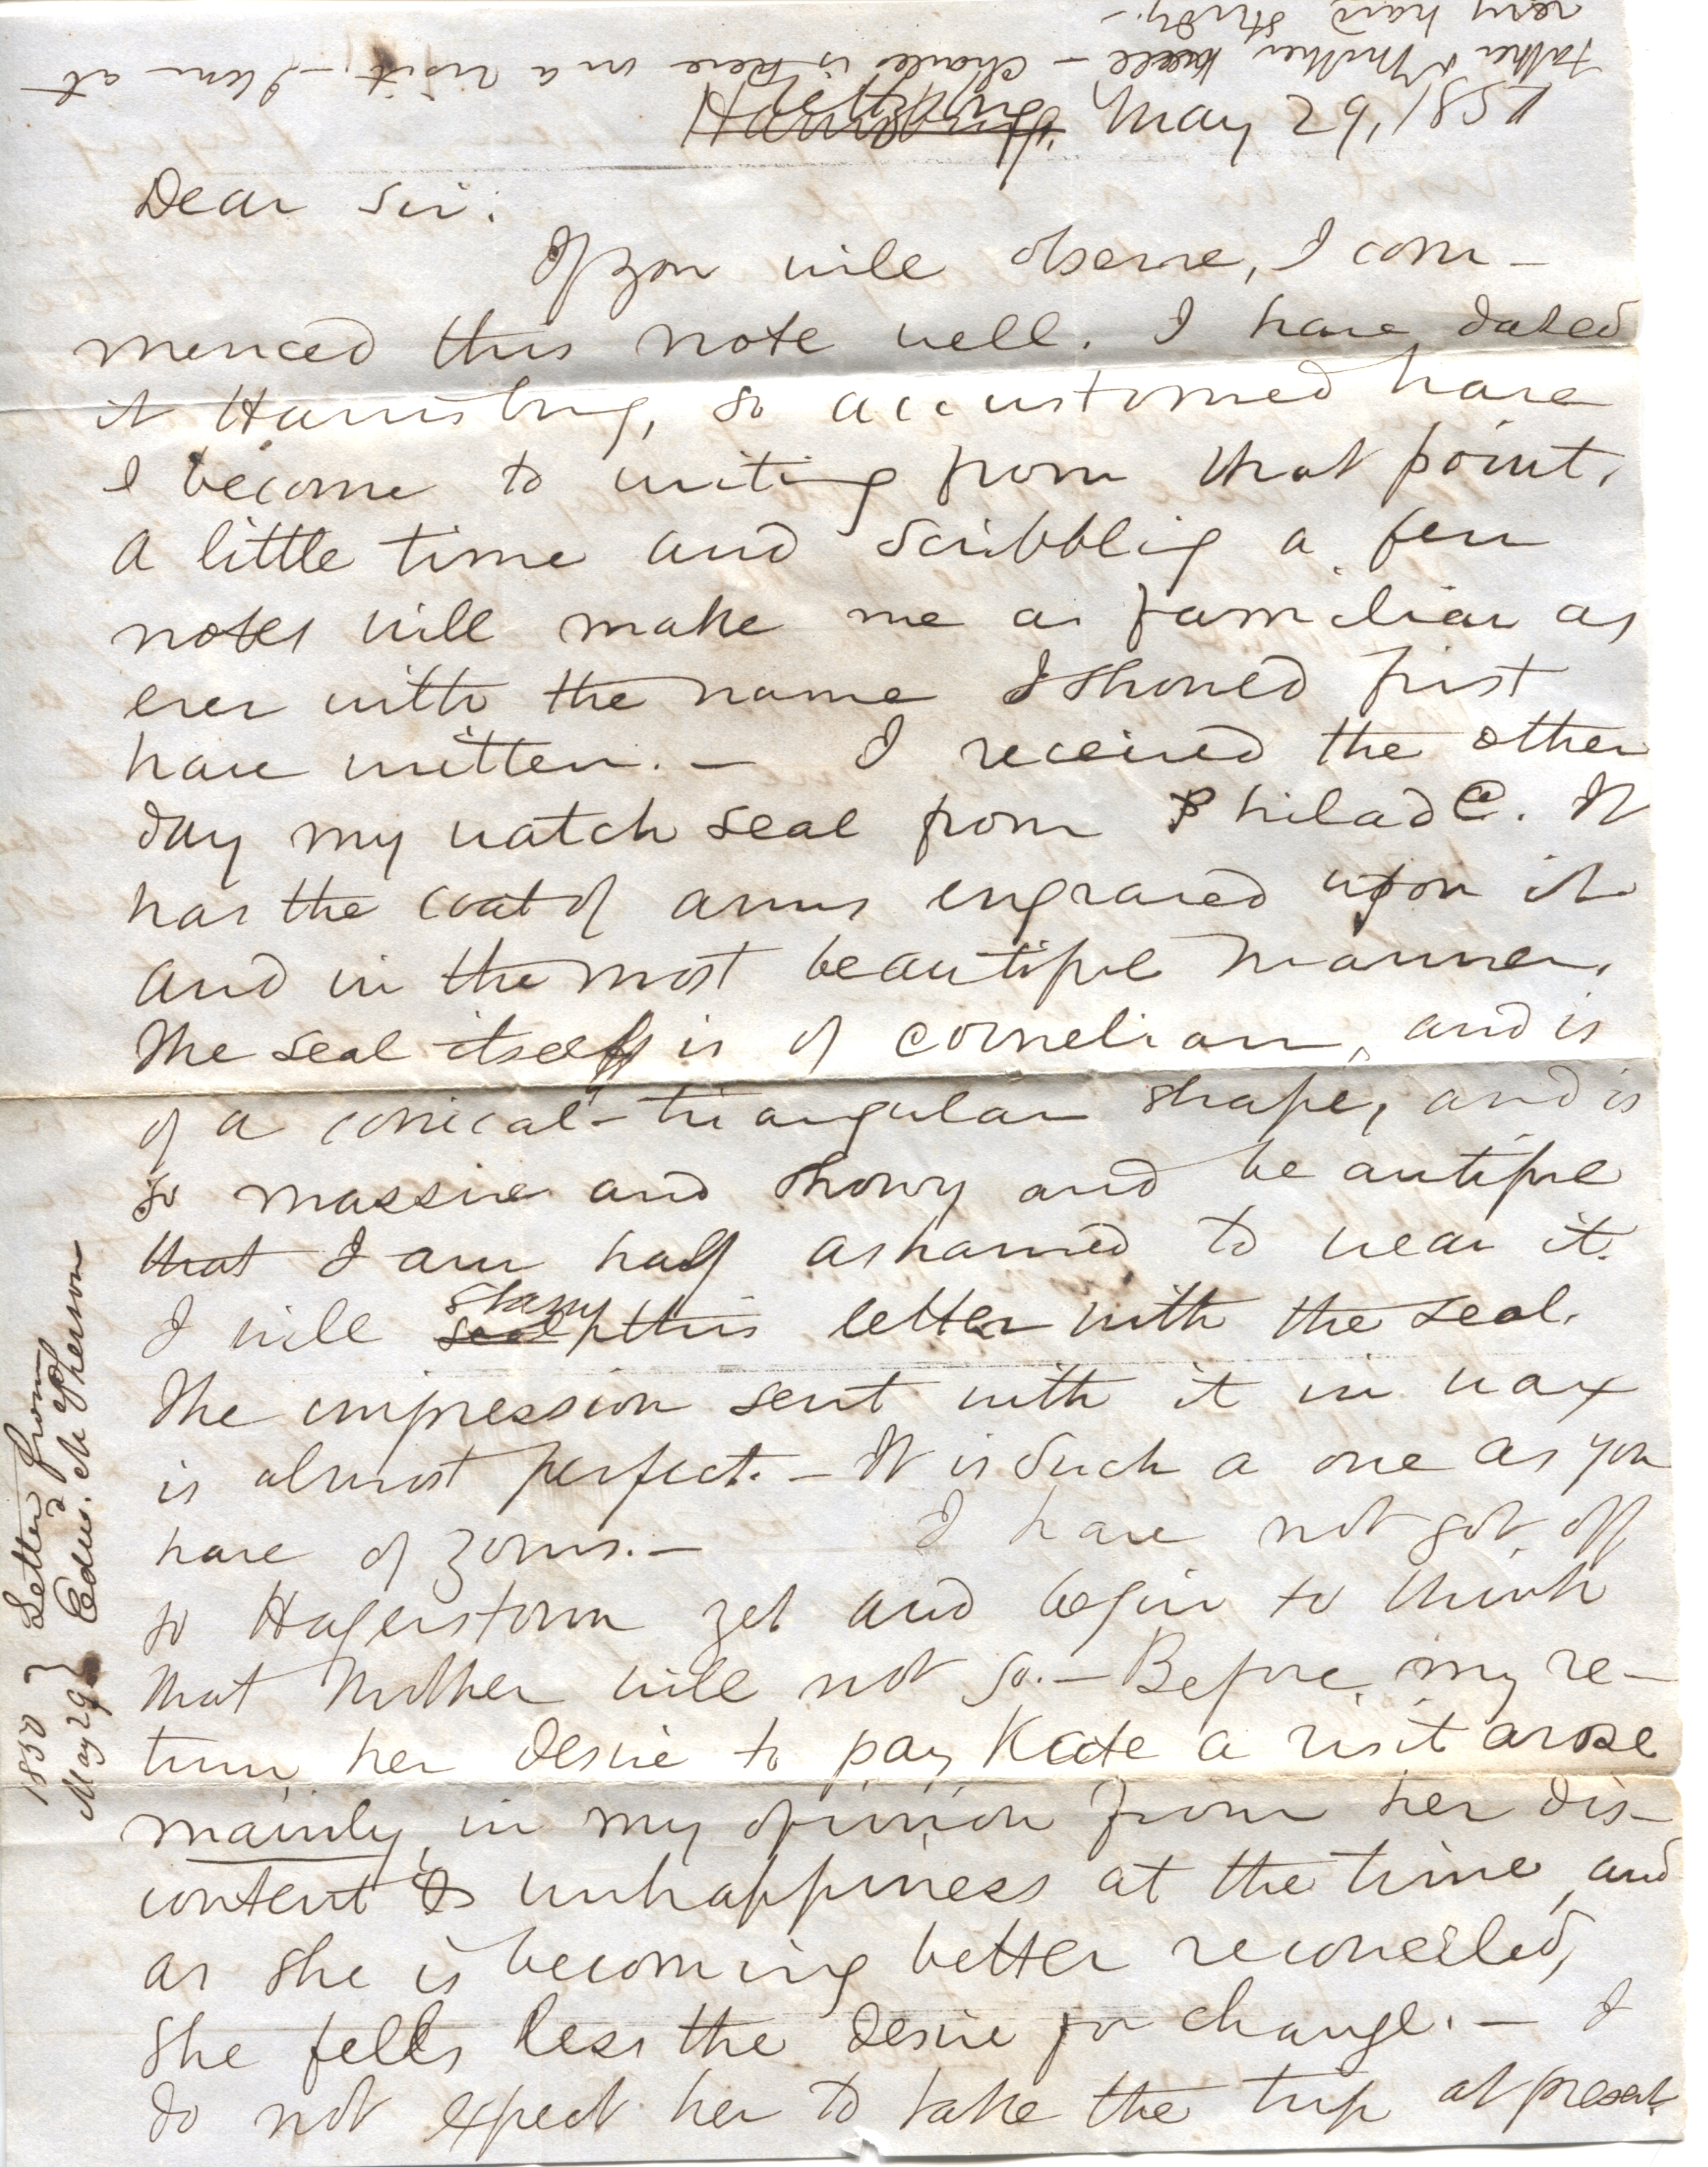 Father & Mother well – Charlie is here on a visit. – I am at
very hard study. –
Harrisburg
Gettysburg May 29, 1850
Dear Sir:
If you will observe, I com-
menced this note well. I have dated
it Harrisburg, so accustomed have
I become to writing from that point.
A little time and scribbling a few
notes will make me as familiar as
ever with the name I should first
have written. – I received the other
day my watch seal from Philada. It
has the coat of arms engraved upon it
and in the most beautiful manner.
The seal itself is of cornelian, and is
of a conical-triangular shape, and is
so massive and showy and beautiful
that I am half ashamed to wear it.
I will seal stamp this letter with the seal.
The impression sent with it in wax
is almost perfect. – It is such a one as you
have of yours. – I have not got off
to Hagerstown yet and begin to think
that Mother will not go. – Before my re-
turn her desire to pay Kate a visit arose
mainly, in my opinion from her dis-
content & unhappiness at the time, and
as she is becoming better reconciled,
she feels less the desire for change. – I
do not expect her to take the trip at present.
1850 } Letter from
May 29 } Edwd. McPherson